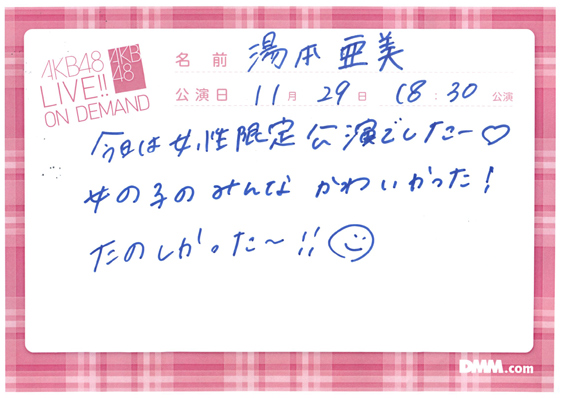 AKB48
LIVE!!
ON DEMAND
AKB
48
名前 湯本亜美
公演日 11月29日 18:30 公演
今日は女性限定公演でしたー♡
女の子のみんな かわいかった!
たのしかった〜!!☺
DMM.com